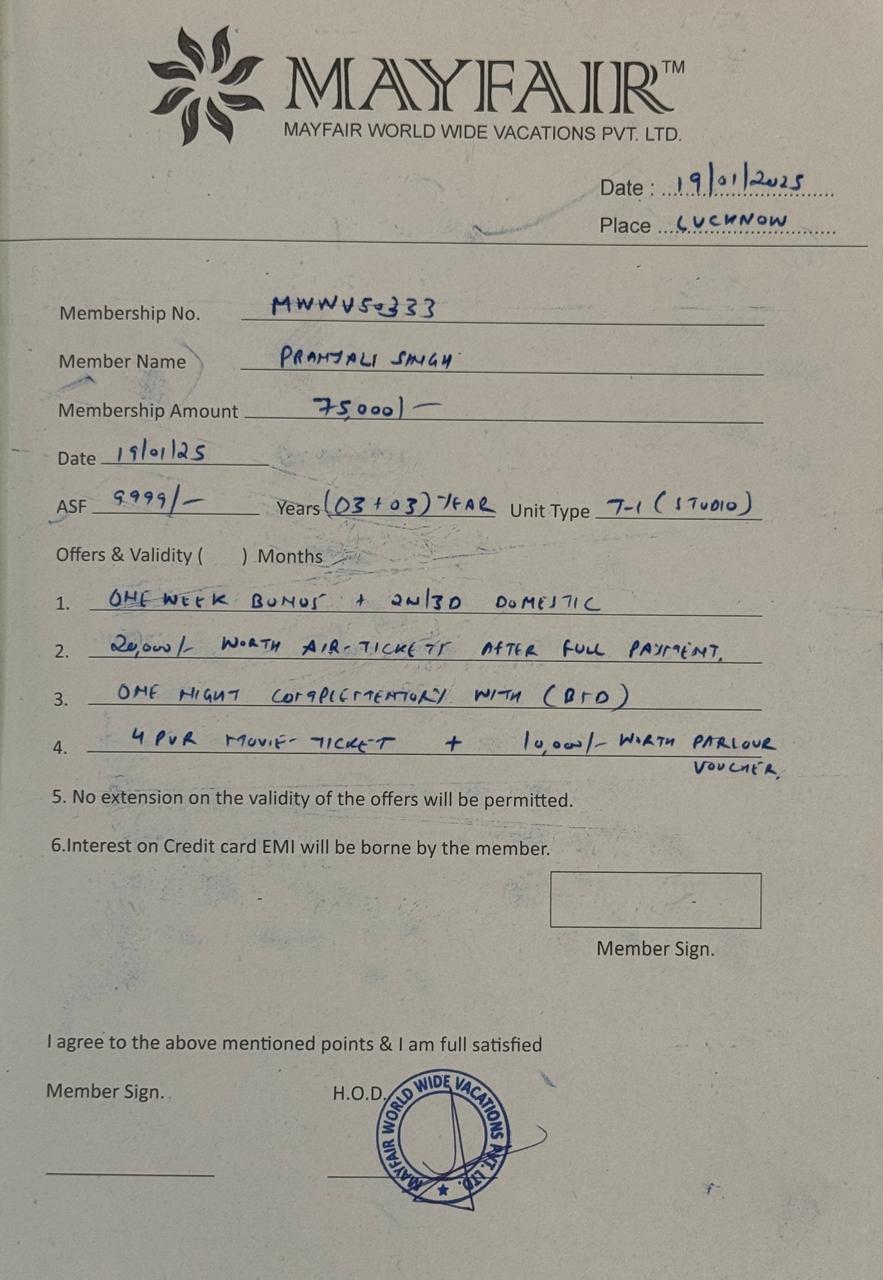 MAYFAIR™
MAYFAIR WORLD WIDE VACATIONS PVT. LTD.
Date : 19/01/2025
Place LUCKNOW
Membership No. MWWV50333
Member Name PRANJALI SINGH
Membership Amount 75,000/-
Date 19/01/25
ASF 9999/- Years (03+03) YEAR Unit Type T-1 (STUDIO)
Offers & Validity ( ) Months
1. ONE WEEK BONUS + 2N/3D DOMESTIC
2. 20,000/- WORTH AIR-TICKETS AFTER FULL PAYMENT.
3. ONE NIGHT COMPLEMENTORY WITH (B+D)
4. 4 PVR MOVIE-TICKET + 10,000/- WORTH PARLOUR
VOUCHER.
5. No extension on the validity of the offers will be permitted.
6.Interest on Credit card EMI will be borne by the member.
Member Sign.
I agree to the above mentioned points & I am full satisfied
Member Sign. H.O.D.
MAYFAIR WORLD WIDE VACATIONS PVT. LTD.